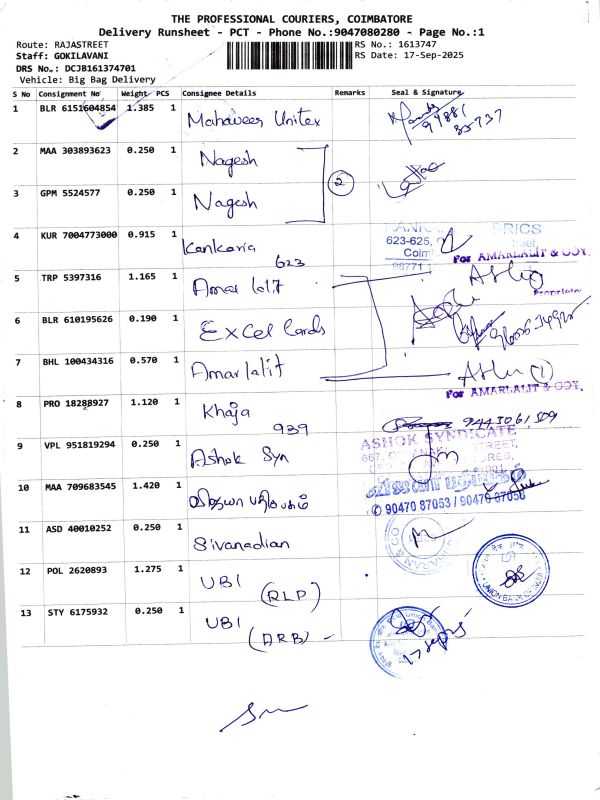 THE PROFESSIONAL COURIERS, COIMBATORE
Delivery Runsheet - PCT - Phone No.:9047080280 - Page No.:1
Route: RAJASTREET
RS No.: 1613747
Staff: GOKILAVANI
RS Date: 17-Sep-2025
DRS No.: DCJB161374701
Vehicle: Big Bag Delivery
S No Consignment No Weight PCS Consignee Details Remarks Seal & Signature
1 BLR 6151604854 1.385 1 Mahaveer Unitex
94881
85737
2 MAA 303893623 0.250 1 Nagesh
2
3 GPM 5524577 0.250 1 Nagesh
4 KUR 7004773000 0.915 1 Kankaria 623
623-625,
Coim
98771
For AMARLALIT & COY.
Proprietor
5 TRP 5397316 1.165 1 Amar lalit
6 BLR 610195626 0.190 1 Excel Cards
7 BHL 100434316 0.570 1 Amarlalit
For AMARLALIT & COY.
8 PRO 18288927 1.120 1 Khaja 939
9443061509
9 VPL 951819294 0.250 1 Ashok Syn
ASHOK SYNDICATE
10 MAA 709683545 1.420 1 விஜயா பதிப்பகம்
விஜயா பதிப்பகம்
✆ 90470 87053 / 90470 87058
11 ASD 40010252 0.250 1 Sivanadian
12 POL 2620893 1.275 1 UBI (RLP)
UNION BANK OF INDIA
13 STY 6175932 0.250 1 UBI (ARB)